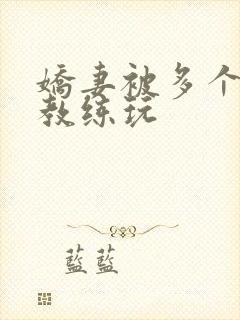 嬌妻被多个
教练玩
藍藍